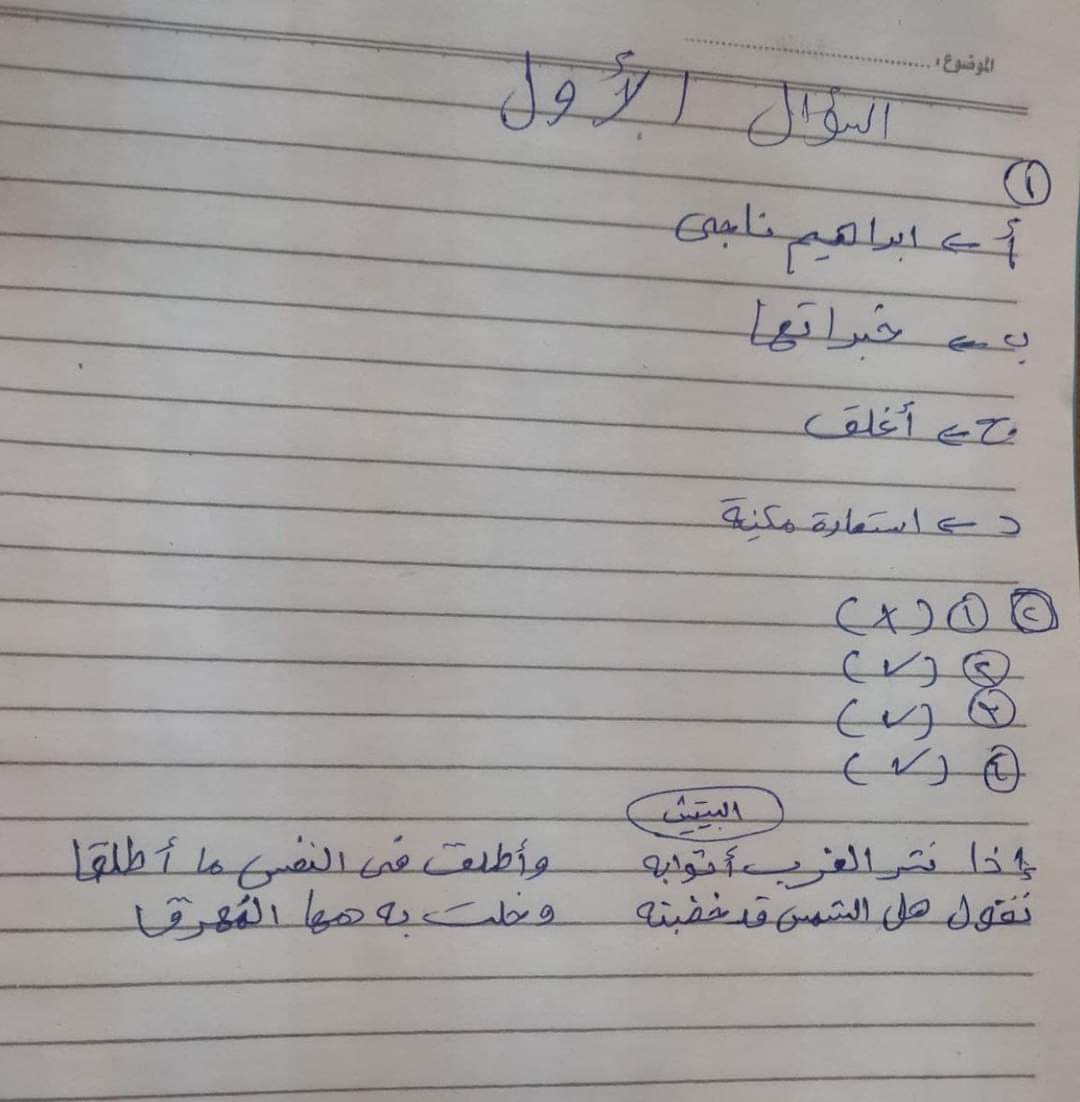 الموضوع:
السؤال الأول
١
أ ← ابراهيم ناجى
ب ← خبراتها
ج ← أغلق
د ← استعارة مكنية
٢ ١ (×)
٢ (✓)
٣ (✓)
٤ (✓)
البيتين
إذا نشر الغرب أثوابه وأطلق فى النفس ما أطلقا
نقول هل الشمس قد خضبته وخلت به دمها المُهرقا